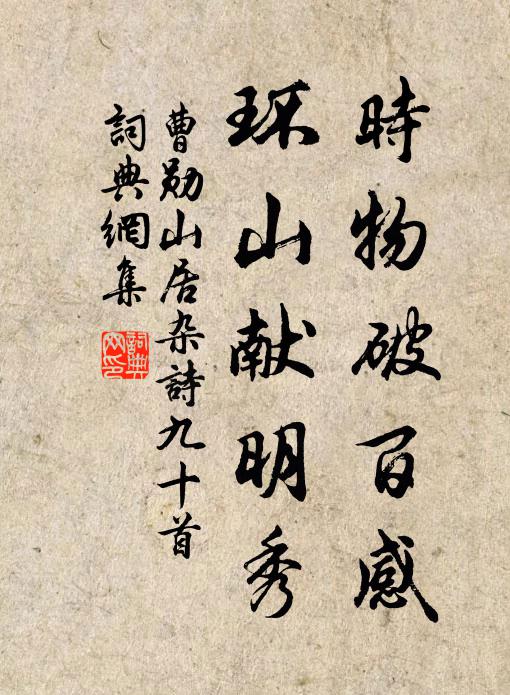 時物破百感
环山献明秀
曹勋山居杂詩九十首
詞典網集
詞典
网印